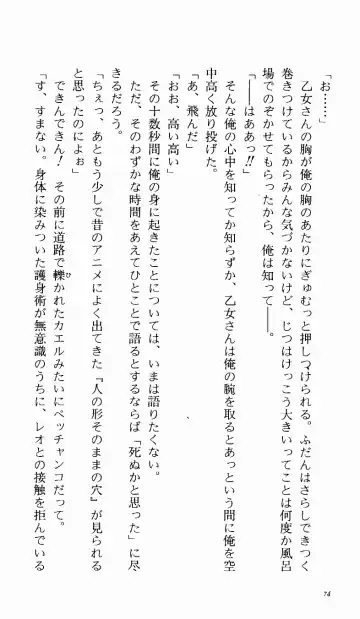 「お……」
乙女さんの胸が俺の胸のあたりにぎゅむっと押しつけられる。ふだんはさらしできつく
巻きつけているからみんな気づかないけど、じつはけっこう大きいってことは何度か風呂
場でのぞかせてもらったから、俺は知って――。
「――はああっ!!」
そんな俺の心中を知ってか知らずか、乙女さんは俺の腕を取るとあっという間に俺を空
中高く放り投げた。
「あ、飛んだ」
「おお、高い高い」
その十数秒間に俺の身に起きたことについては、いまは語りたくない。
ただ、そのわずかな時間をあえてひとことで語るとするならば「死ぬかと思った」に尽
きるだろう。
「ちぇっ、あともう少しで昔のアニメによく出てきた『人の形そのままの穴』が見られる
と思ったのによぉ」
「できんできん！　その前に道路で轢かれたカエルみたいにペッチャンコだって。
「す、すまない。身体に染みついた護身術が無意識のうちに、レオとの接触を拒んでいる
74